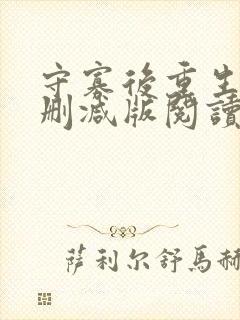 守寡後重生
刪減版閱讀
萨利尔舒馬赫